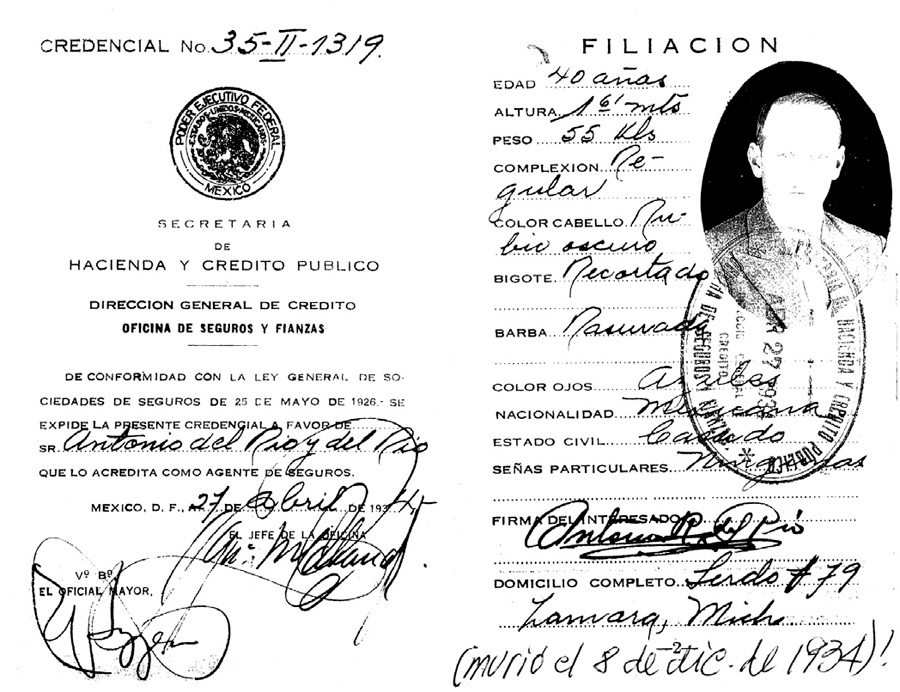 CREDENCIAL No. 35-II-1319.
PODER EJECUTIVO FEDERAL
ESTADOS UNIDOS MEXICANOS
MEXICO
SECRETARIA
DE
HACIENDA Y CREDITO PUBLICO
DIRECCION GENERAL DE CREDITO
OFICINA DE SEGUROS Y FIANZAS
DE CONFORMIDAD CON LA LEY GENERAL DE SO-
CIEDADES DE SEGUROS DE 25 DE MAYO DE 1926,- SE
EXPIDE LA PRESENTE CREDENCIAL A FAVOR DE
SR. Antonio del Rio y del Rio
QUE LO ACREDITA COMO AGENTE DE SEGUROS.
MEXICO, D. F., A 27 DE Abril DE 193
EL JEFE DE LA OFICINA
Vº Bº
EL OFICIAL MAYOR,
FILIACION
EDAD 40 años
ALTURA 1 61 mts
PESO 55 Kls
COMPLEXION Re-
gular
COLOR CABELLO Ru-
bio oscuro
BIGOTE Recortado
BARBA Rasurada
COLOR OJOS Azules
NACIONALIDAD Mexicana
ESTADO CIVIL Casado
SEÑAS PARTICULARES Ningunas
FIRMA DEL INTERESADO
Antonio R. del Rio
DOMICILIO COMPLETO Lerdo # 79
Zamora, Mich.
(murió el 8 de dic. de 1934)!
HACIENDA Y CREDITO PUBLICO
ABR 27 193